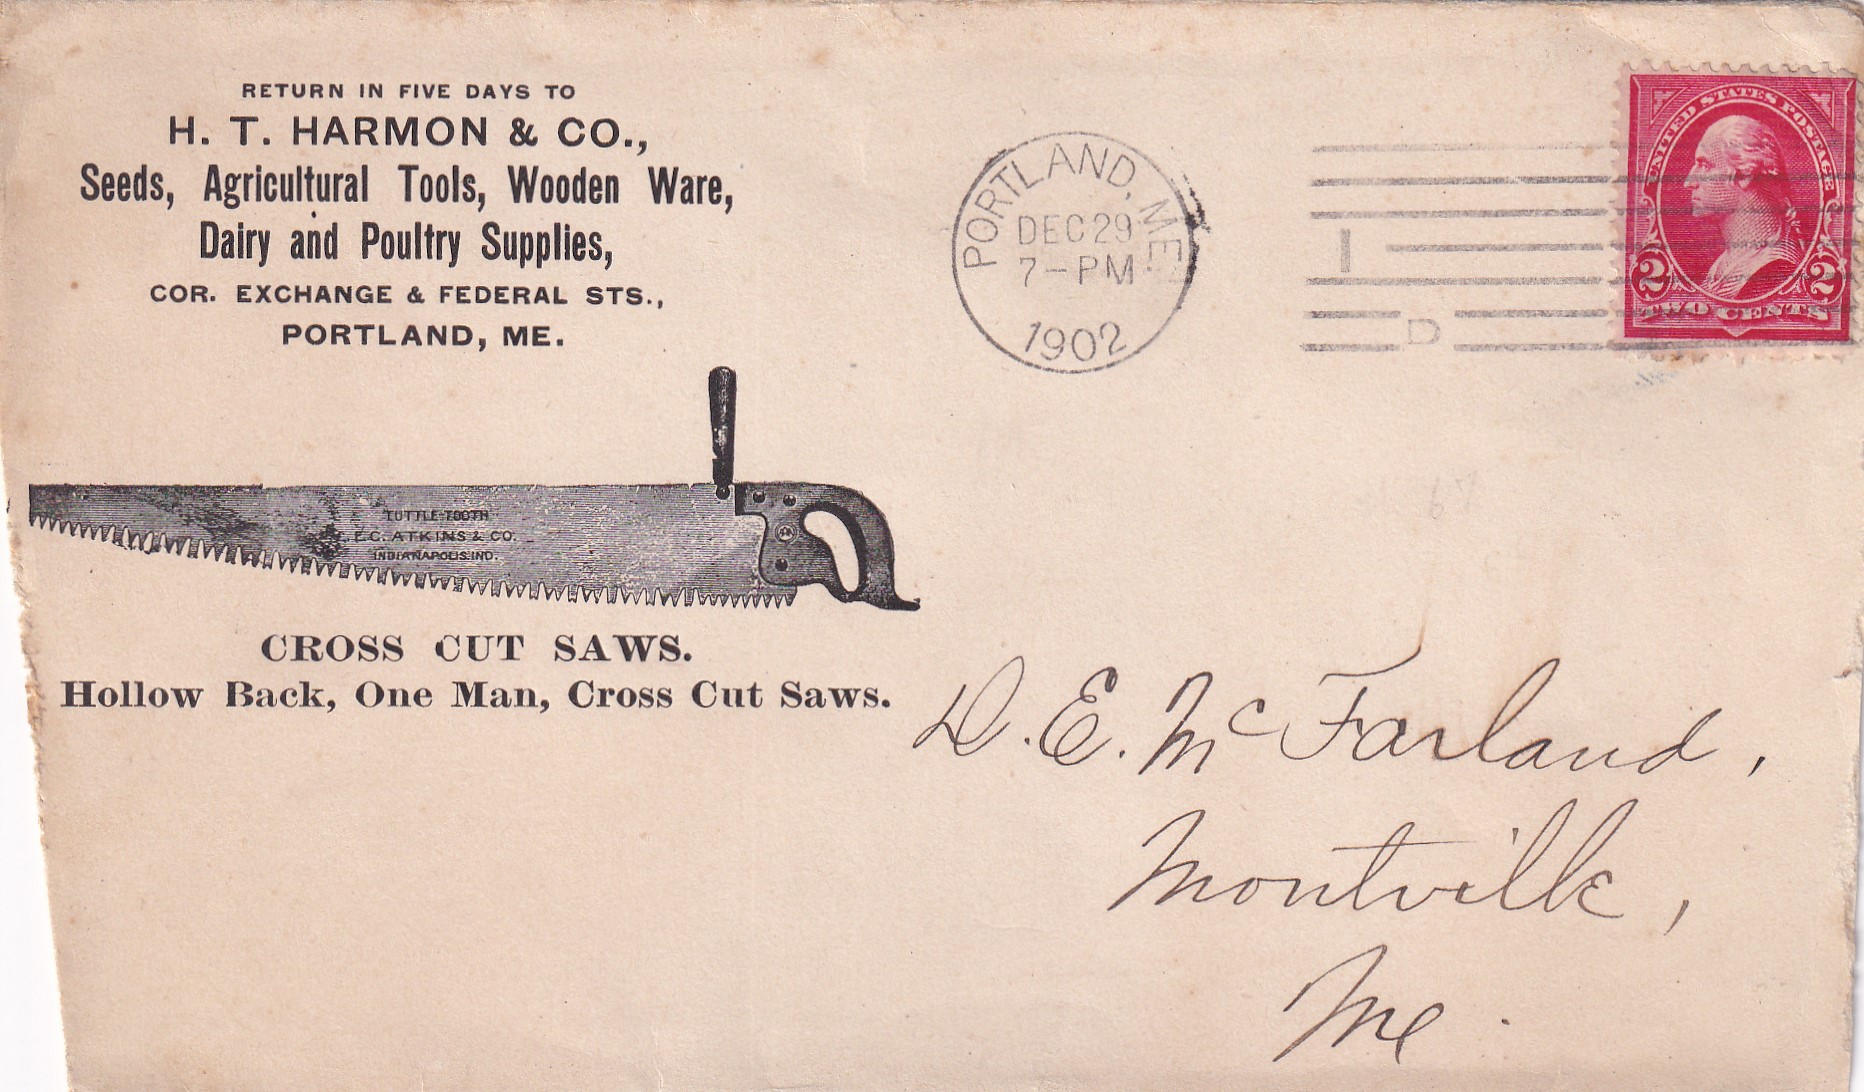 RETURN IN FIVE DAYS TO
H. T. HARMON & CO.,
Seeds, Agricultural Tools, Wooden Ware,
Dairy and Poultry Supplies,
COR. EXCHANGE & FEDERAL STS.,
PORTLAND, ME.
TUTTLE-TOOTH
E.C. ATKINS & CO.
INDIANAPOLIS.IND.
CROSS CUT SAWS.
Hollow Back, One Man, Cross Cut Saws.
PORTLAND, ME.
DEC 29
7-PM
1902
1
D
UNITED STATES POSTAGE
2 2
TWO CENTS
67
D. E. McFarland,
Montville,
Me.